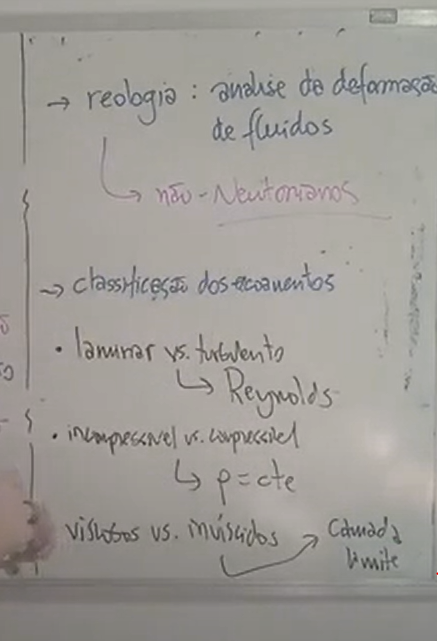 → reologia : análise da deformação
de fluidos
↳ não-Newtonianos
→ classificação dos escoamentos
• laminar vs. turbulento
↳ Reynolds
• incompressível vs. compressível
↳ ρ = cte
viscosos vs. invíscidos → Camada
limite